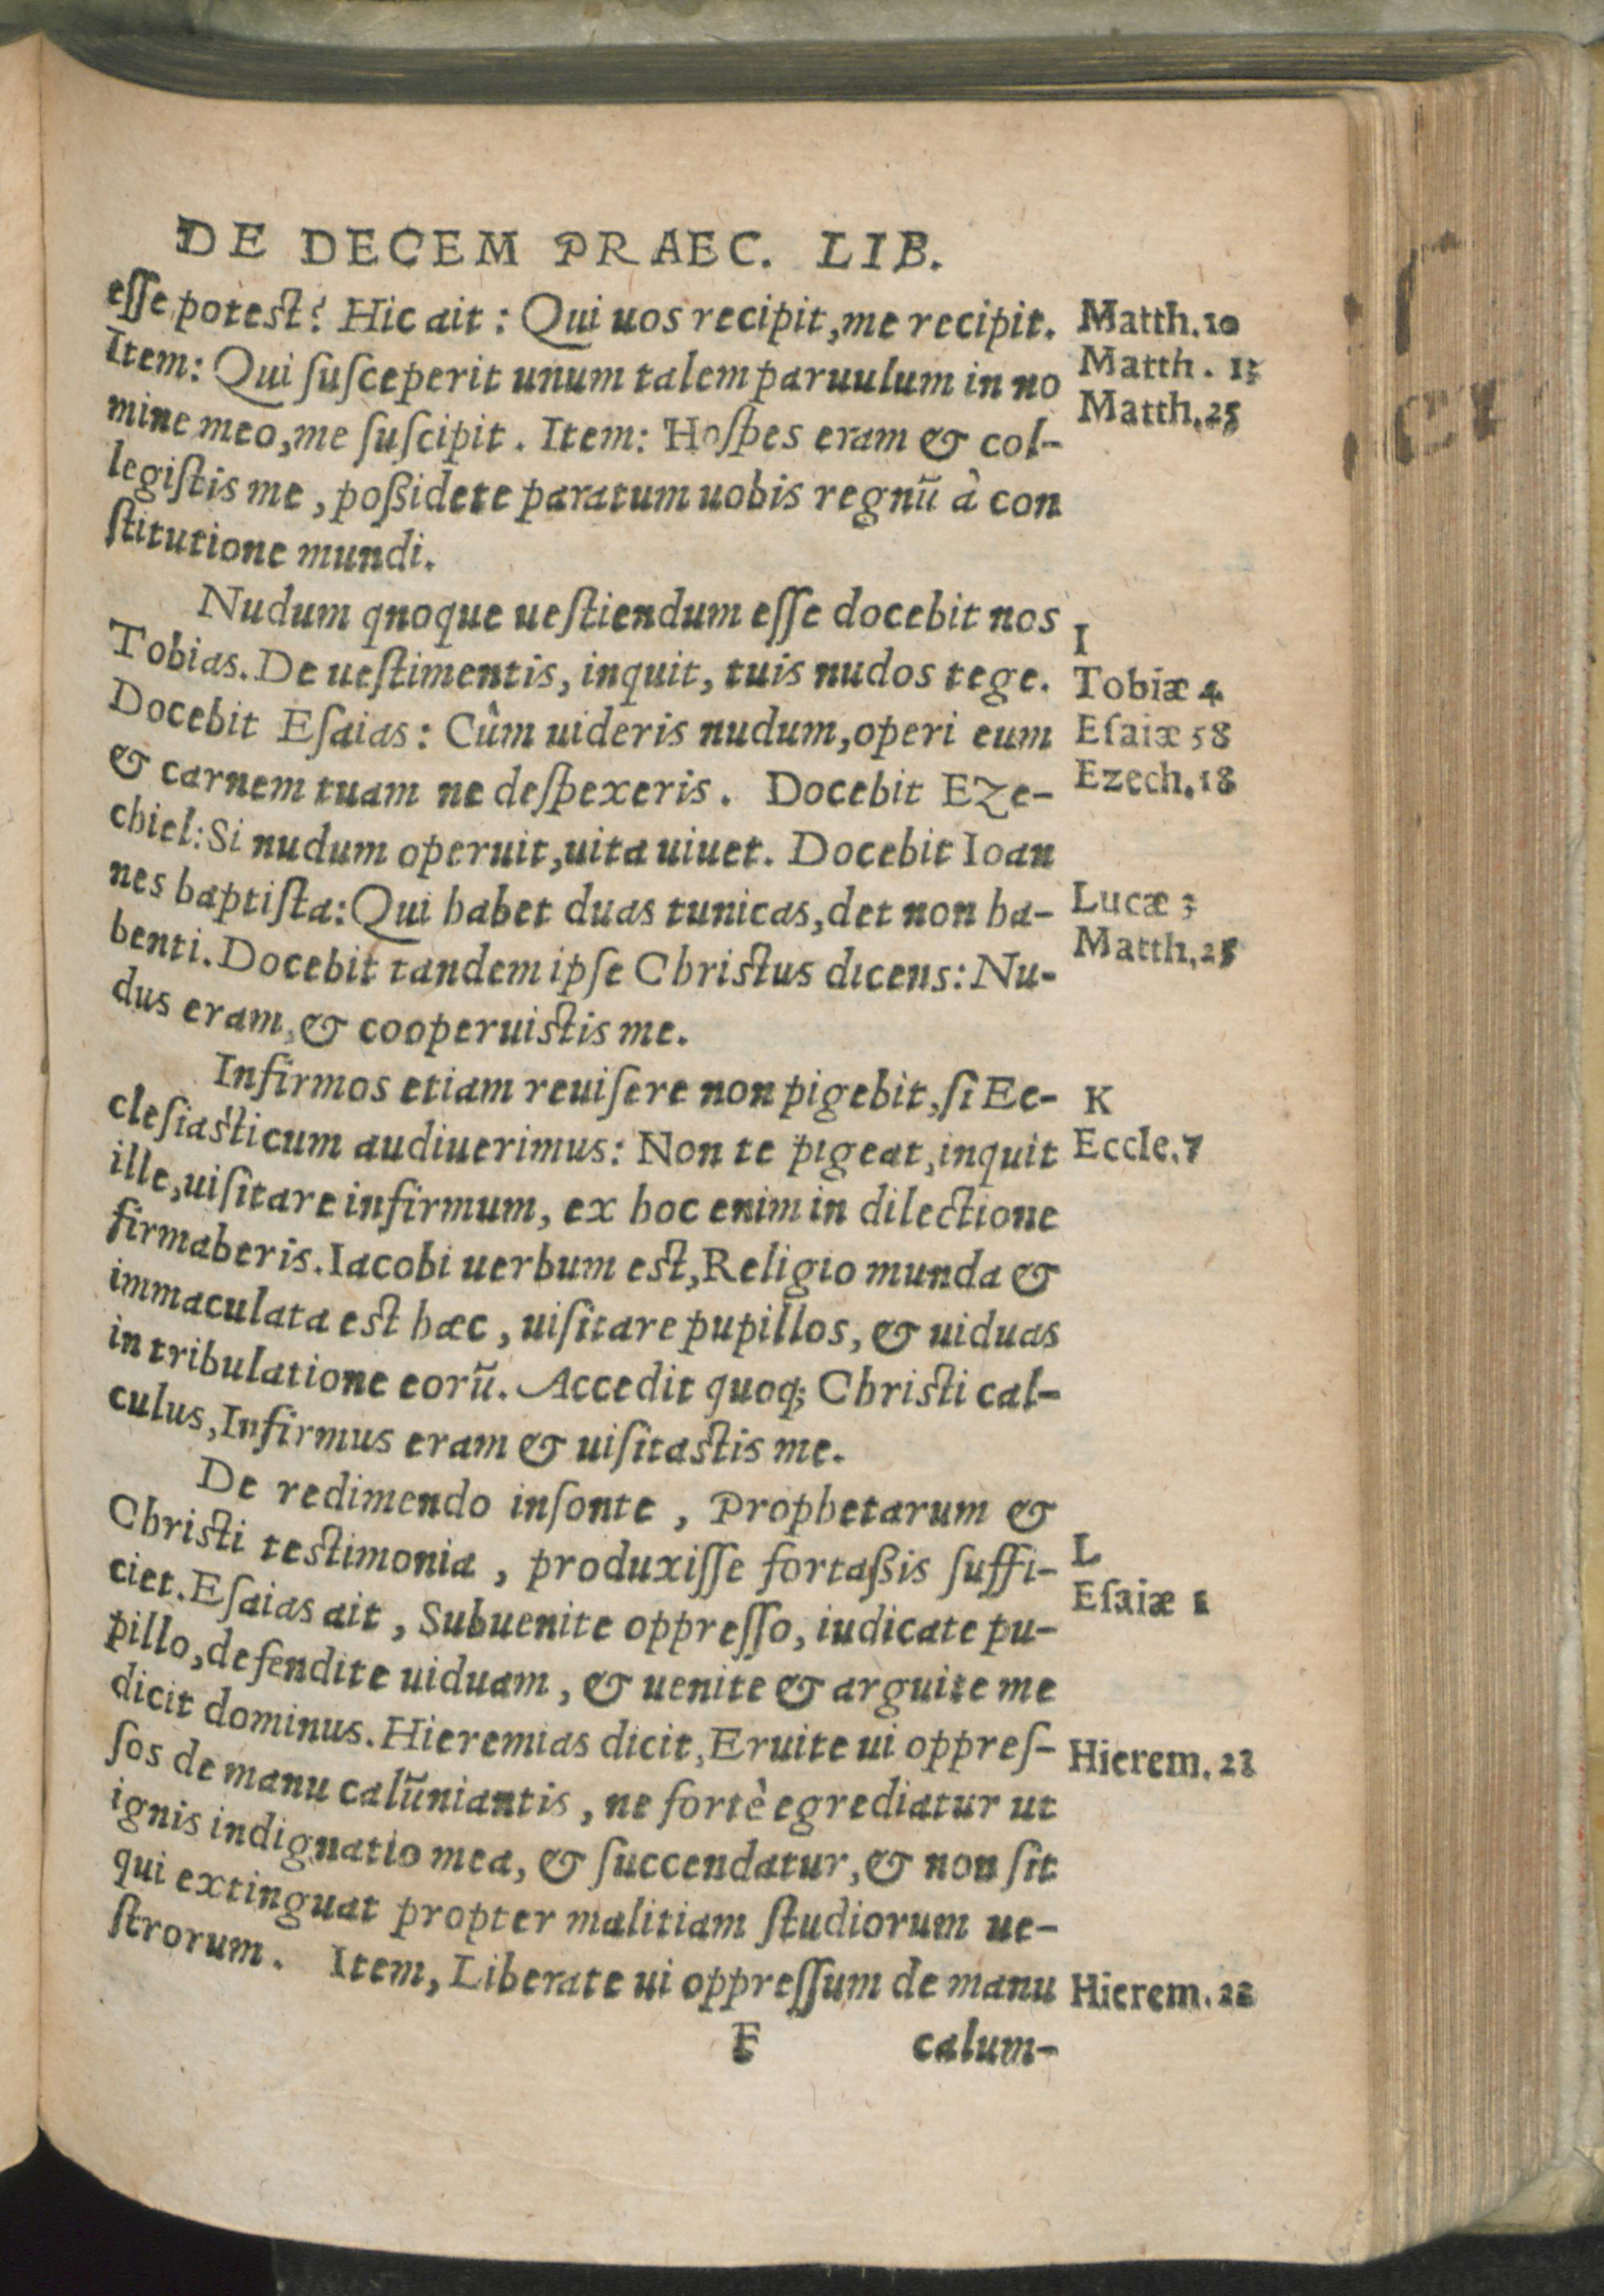 DE DECEM PRAEC. LIB.
eſſe potest? Hic ait: Qui uos recipit, me recipit. Matth.10
Item: Qui ſuſceperit unum talem paruulum in no Matth. 13
mine meo, me ſuſcipit. Item: Hoſpes eram & col- Matth.25
legiſtis me, poßidete paratum uobis regnũ à con
ſtitutione mundi.
Nudum qnoque ueſtiendum eſſe docebit nos I
Tobias. De ueſtimentis, inquit, tuis nudos tege. Tobiæ 4
Docebit Eſaias: Cûm uideris nudum, operi eum Eſaiæ 58
& carnem tuam ne deſpexeris. Docebit EZe- Ezech.18
chiel: Si nudum operuit, uita uiuet. Docebit Ioan
nes baptiſta: Qui habet duas tunicas, det non ha- Lucæ 3
benti. Docebit tandem ipſe Christus dicens: Nu- Matth.25
dus eram, & cooperuistis me.
Infirmos etiam reuiſere non pigebit, ſi Ec- K
cleſiasticum audiuerimus: Non te pigeat, inquit Eccle.7
ille, uiſitare infirmum, ex hoc enim in dilectione
firmaberis. Iacobi uerbum est, Religio munda &
immaculata est hæc, uiſitare pupillos, & uiduas
in tribulatione eorũ. Accedit quoq; Christi cal-
culus, Infirmus eram & uiſitastis me.
De redimendo inſonte, Prophetarum &
Christi testimonia, produxiſſe fortaßis ſuffi- L
ciet. Eſaias ait, Subuenite oppreſſo, iudicate pu- Eſaiæ 1
pillo, defendite uiduam, & uenite & arguite me
dicit dominus. Hieremias dicit, Eruite ui oppreſ- Hierem. 21
ſos de manu calũniantis, ne fortè egrediatur ut
ignis indignatio mea, & ſuccendatur, & non ſit
qui extinguat propter malitiam ſtudiorum ue-
ſtrorum. Item, Liberate ui oppreſſum de manu Hierem. 22
F calum-